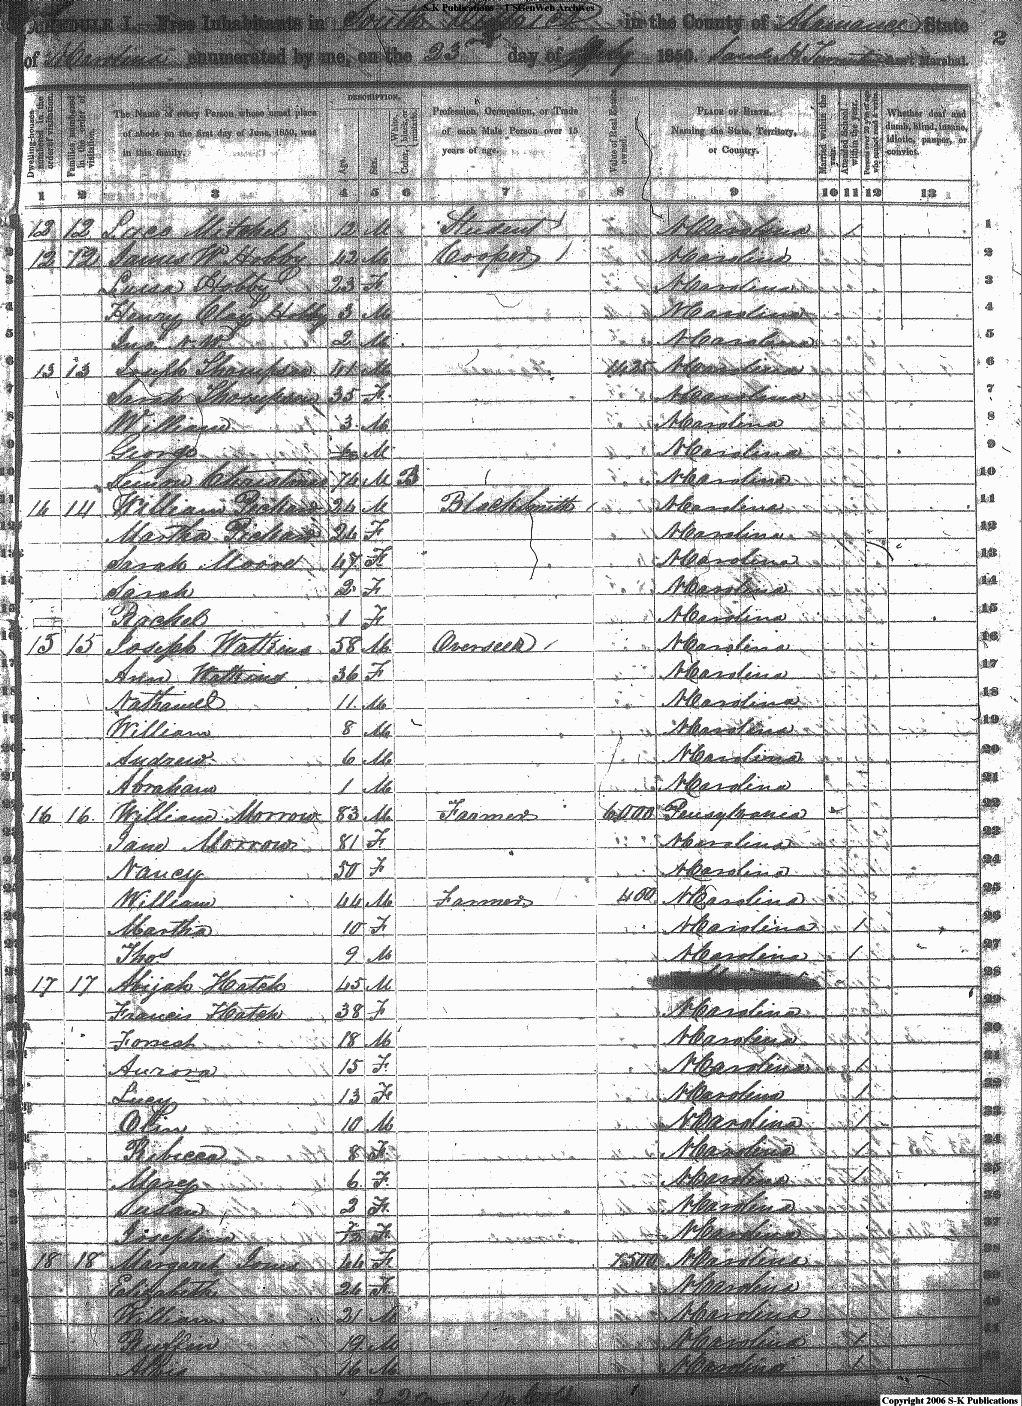 S-K Publications - USGenWeb Archives
SCHEDULE I.—Free Inhabitants in South in the County of Alamance State
of N Carolina enumerated by me, on the 23 day of July 1850. Ass't Marshal.
2
Dwelling-houses numbered in the order of visitation.
Families numbered in the order of visitation.
The Name of every Person whose usual place of abode on the first day of June, 1850, was in this family.
DESCRIPTION.
Age.
Sex.
Color, White, black, or mulatto.
Profession, Occupation, or Trade of each Male Person over 15 years of age.
Value of Real Estate owned.
PLACE OF BIRTH. Naming the State, Territory, or Country.
Married within the year.
Attended School within the year.
Persons over 20 y'rs of age who cannot read & write.
Whether deaf and dumb, blind, insane, idiotic, pauper, or convict.
1 2 3 4 5 6 7 8 9 10 11 12 13
12 12 Mitchel 12 M Student N Carolina 1
12 12 James W Hobby 42 M Cooper N Carolina
Luisa Hobby 23 F N Carolina
Henry Clay Hobby 3 M N Carolina
Jno W 2 M N Carolina
13 13 Joseph Thompson 41 M 1425 N Carolina
Sarah Thompson 35 F N Carolina
William 3 M N Carolina
George M N Carolina
Christmas 74 M B N Carolina
14 14 William 24 M Blacksmith N Carolina
Martha 24 F N Carolina
Sarah Moore 47 F N Carolina
Sarah 2 F N Carolina
Rachel 1 F N Carolina
15 15 Joseph Watkins 58 M Overseer N Carolina
Ann Watkins 36 F N Carolina
Nathaniel 11 M N Carolina
William 8 M N Carolina
Andrew 6 M N Carolina
Abraham 1 M N Carolina
16 16 William Morrow 83 M Farmer 6,000 Pensylvania
Jane Morrow 81 F N Carolina
Nancy 50 F N Carolina
William 44 M Farmer 400 N Carolina
Martha 10 F N Carolina 1
Thos 9 M N Carolina 1
17 17 Abijah Hatch 45 M
Francis Hatch 38 F N Carolina
Forrest 18 M N Carolina
Aurora 15 F N Carolina 1
Lucy 13 F N Carolina 1
Olin 10 M N Carolina 1
Rebecca 8 F N Carolina 1
Marcy 6 F N Carolina 1
Susan 2 F N Carolina
Josephine F N Carolina
18 18 Margaret Jones 44 F 1500 N Carolina
Elizabeth 24 F N Carolina
William 21 M N Carolina
Ruffin 19 M N Carolina 1
16 M N Carolina 1
Copyright 2006 S-K Publications